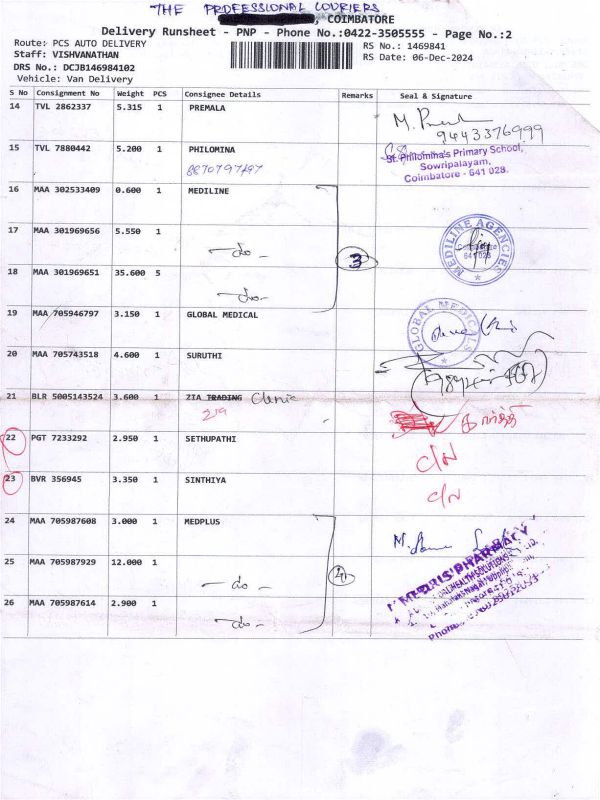 THE PROFESSIONAL COURIERS
, COIMBATORE
Delivery Runsheet - PNP - Phone No.:0422-3505555 - Page No.:2
Route: PCS AUTO DELIVERY
RS No.: 1469841
Staff: VISHVANATHAN
RS Date: 06-Dec-2024
DRS No.: DCJB146984102
Vehicle: Van Delivery
S No Consignment No Weight PCS Consignee Details Remarks Seal & Signature
14 TVL 2862337 5.315 1 PREMALA
9443376999
15 TVL 7880442 5.200 1 PHILOMINA
St. Philomina's Primary School,
Sowripalayam,
Coimbatore - 641 028.
16 MAA 302533409 0.600 1 MEDILINE
17 MAA 301969656 5.550 1
-do-
3
MEDILINE AGENCIES
641 028
18 MAA 301969651 35.600 5
-do-
19 MAA 705946797 3.150 1 GLOBAL MEDICAL
GLOBAL MEDICALS
20 MAA 705743518 4.600 1 SURUTHI
21 BLR 5005143524 3.600 1 ZIA TRADING Clinic
கார்த்தி
22 PGT 7233292 2.950 1 SETHUPATHI
C/N
23 BVR 356945 3.350 1 SINTHIYA
C/N
24 MAA 705987608 3.000 1 MEDPLUS
25 MAA 705987929 12.000 1
-do-
26 MAA 705987614 2.900 1
-do-